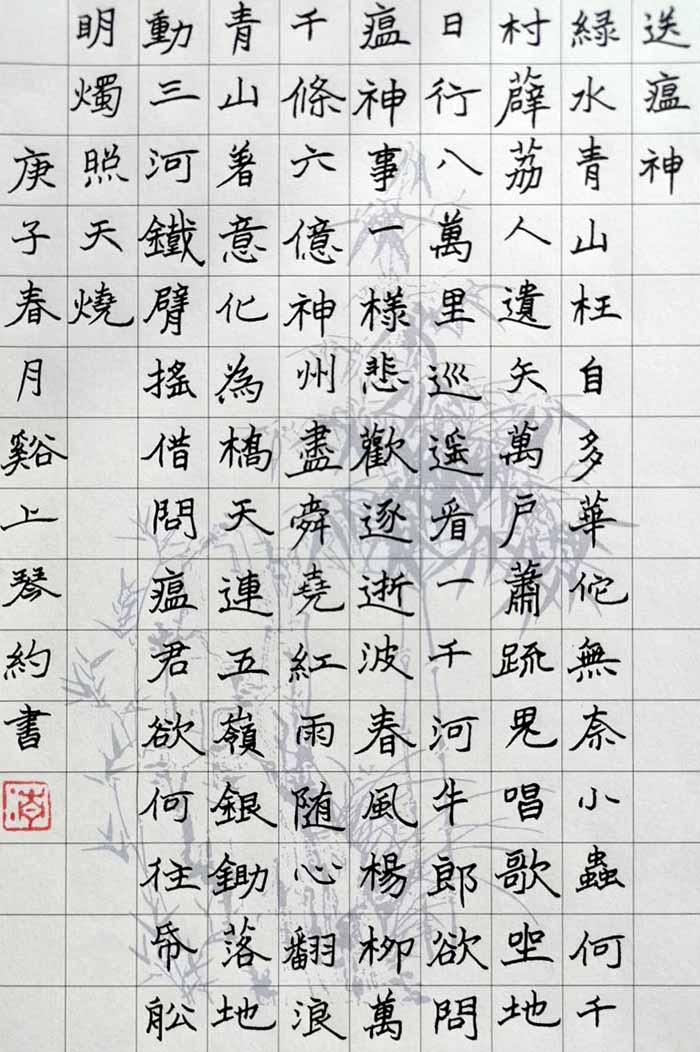 送瘟神
緑水青山枉自多華佗無奈小蟲何千
村薜荔人遺矢萬戶蕭疏鬼唱歌坐地
日行八萬里巡遥看一千河牛郎欲問
瘟神事一樣悲歡逐逝波春風楊柳萬
千條六億神州盡舜堯紅雨随心翻浪
青山着意化為橋天連五嶺銀鋤落地
動三河鐵臂搖借問瘟君欲何往帋舩
明燭照天燒
庚子春月谿上琴約書